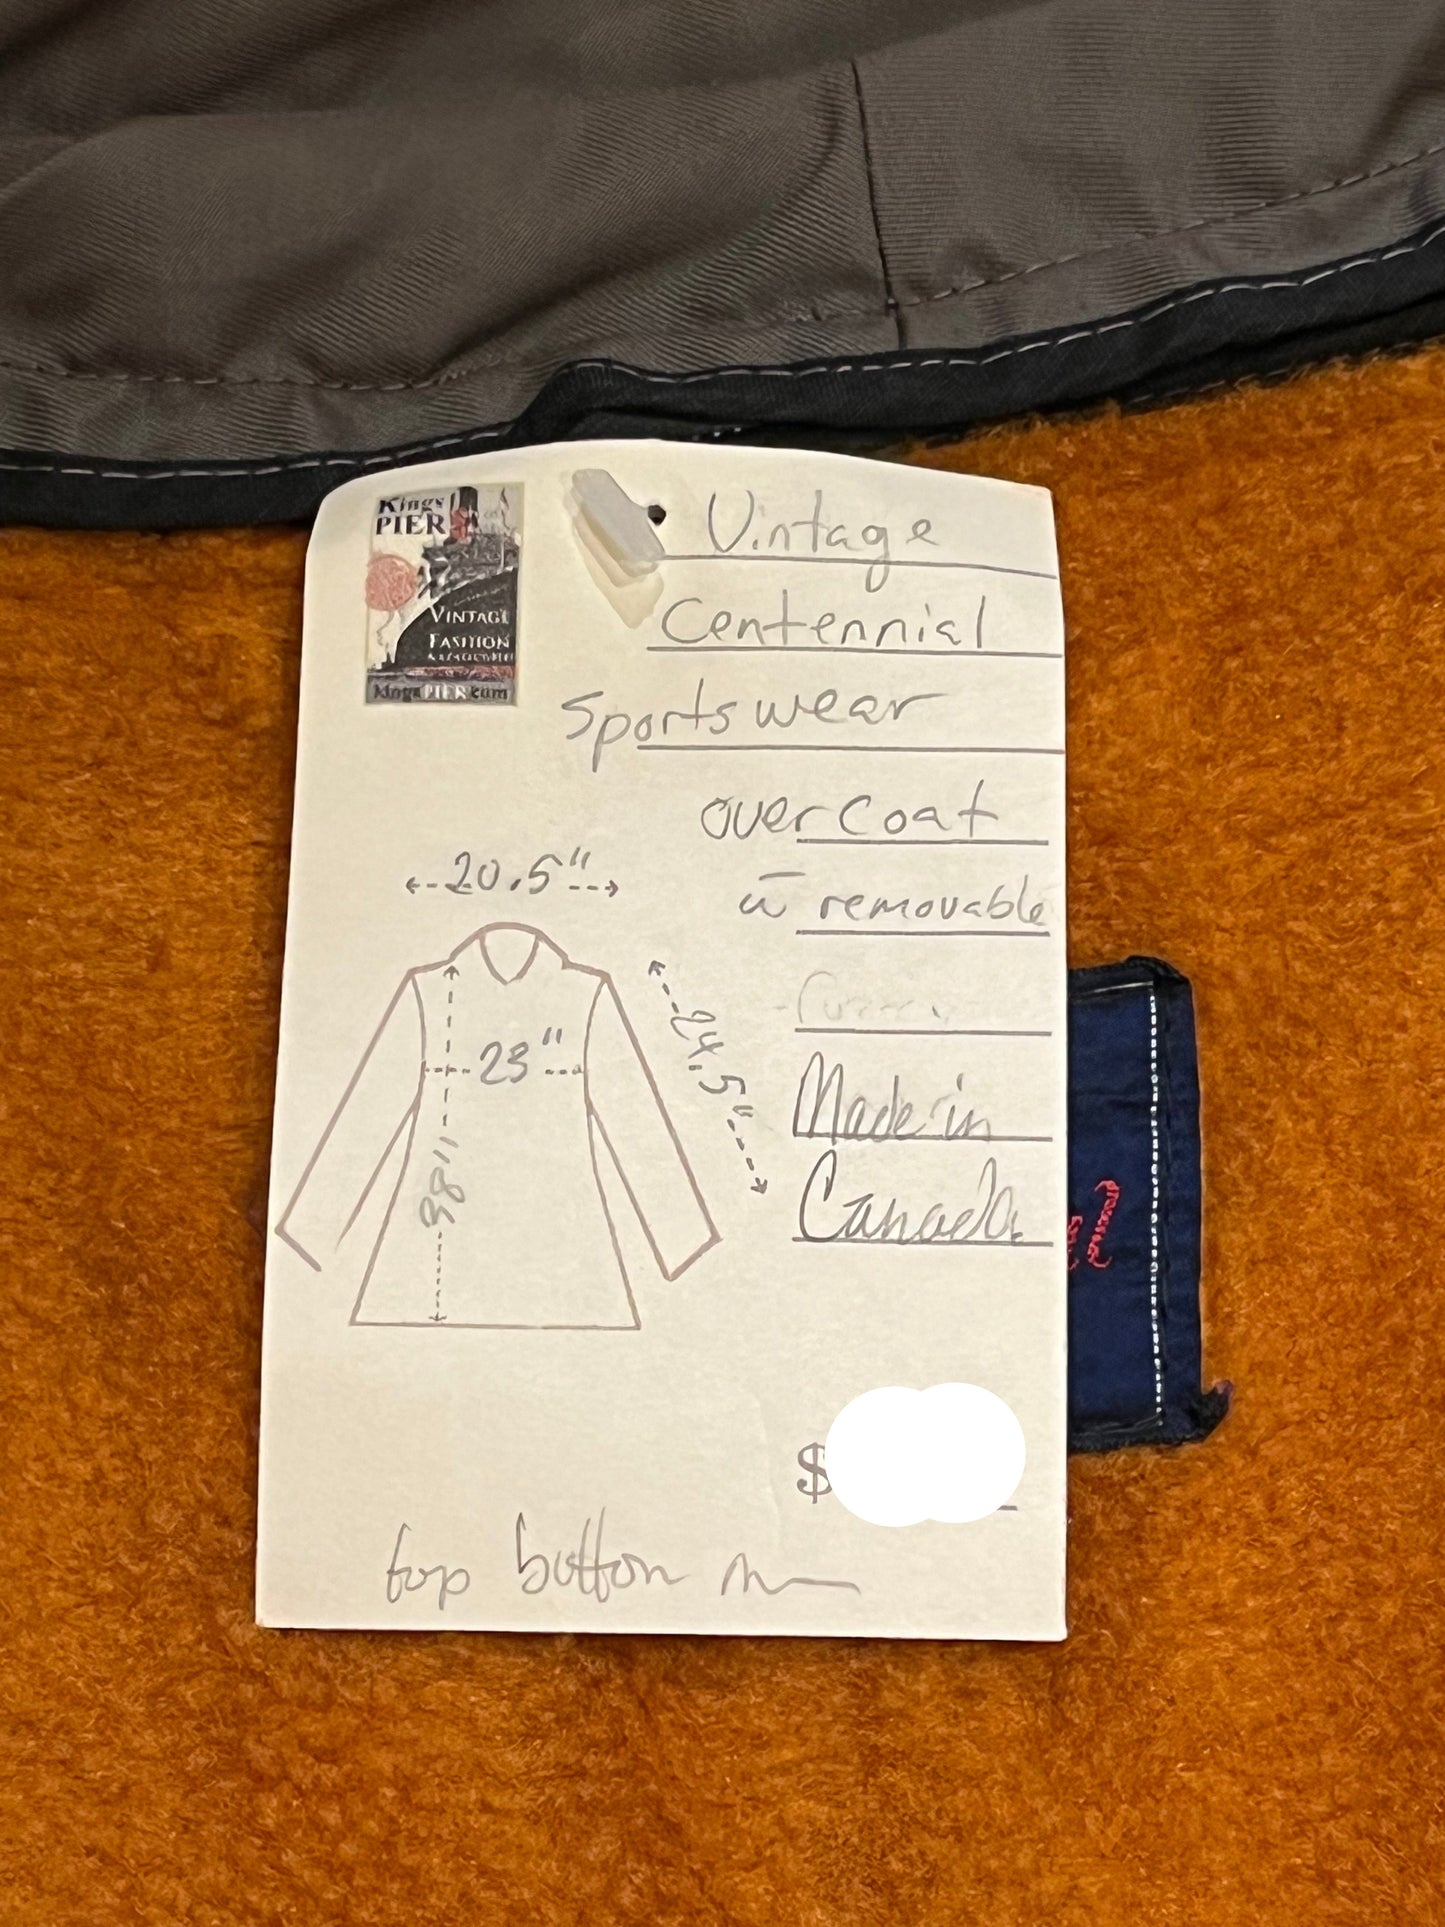 Kings
PIER
VINTAGE
FASHION
kingsPIER.com
Vintage
Centennial
Sportswear
overcoat
w̄ removable
Made in
Canada
20.5"
23"
24.5"
38"
$
top button